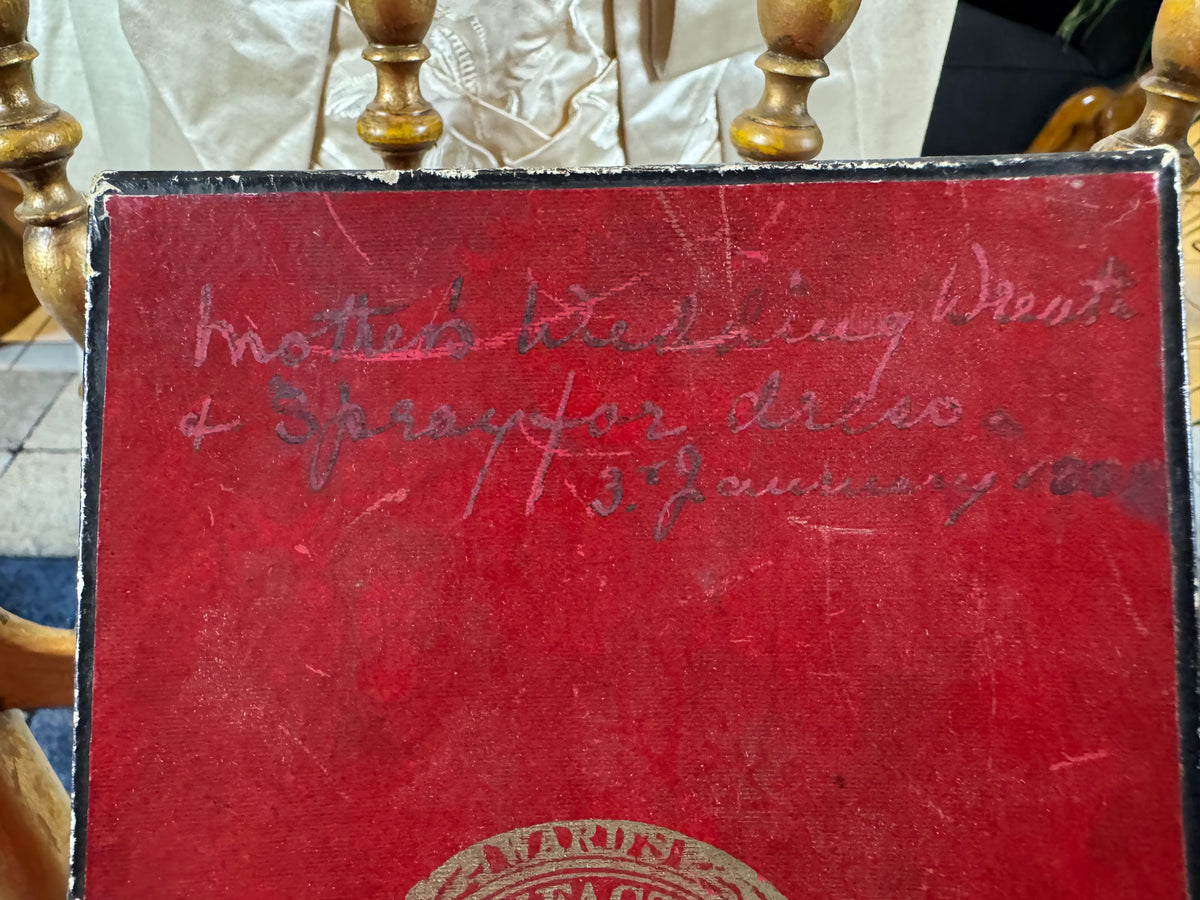 Mother's Wedding Wreath
& Spray for dress
3rd January
WARD'S